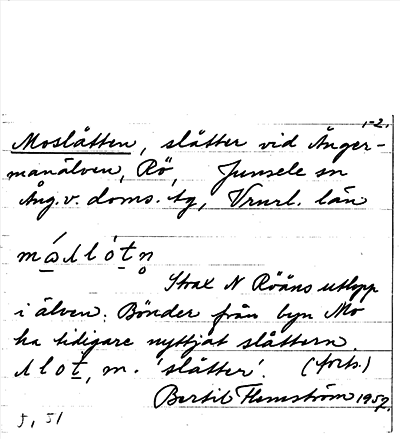 1-2.
Moslåtten, slåtter vid Ånger-
manälven, Rö, Junsele sn
Ång. v. doms. tg, Vnrl. län
Strax N Rööns utlopp
i älven. Bönder från byn Mo
ha tidigare nyttjat slåttern.
m. 'slåtter'. (forts.)
Bertil Flemström 1957.
5, 51